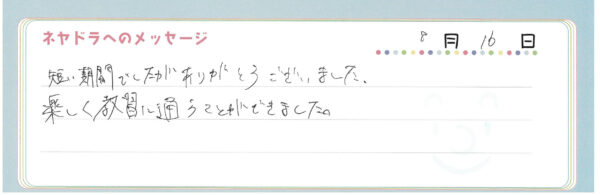 ネヤドラへのメッセージ
8月16日
短い期間でしたがありがとうございました。
楽しく教習に通うことができました。